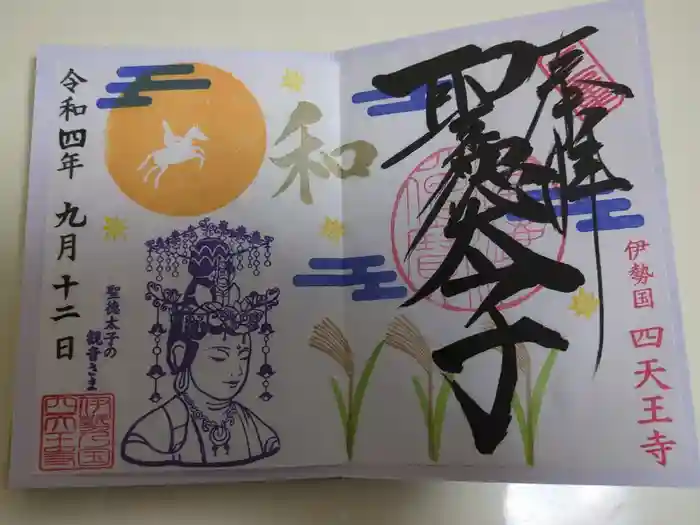 奉拝
聖徳太子
伊勢国 四天王寺
和
令和四年 九月十二日
聖徳太子の
観音さま
伊勢乃国
四天王寺